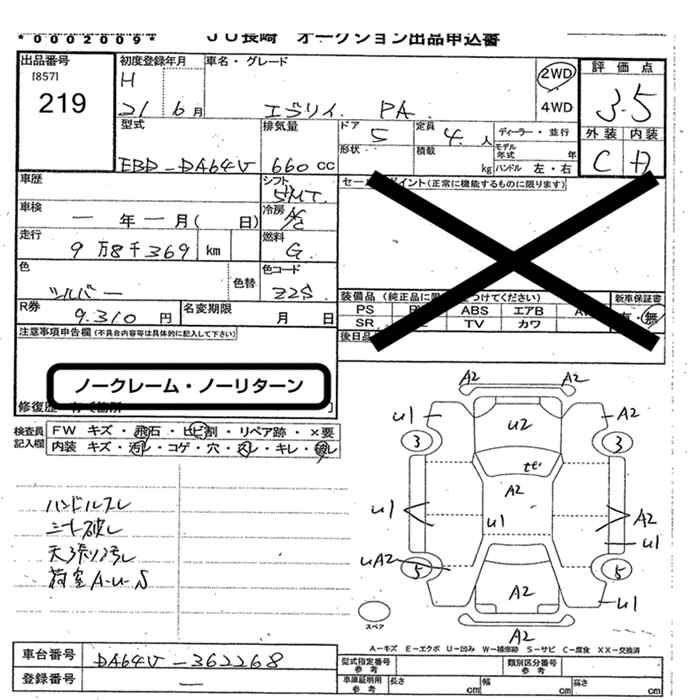 *0002009*
JU長崎 オークション出品申込書
出品番号
[857]
219
初度登録年月
H
21 6月
車名・グレード
エブリイ PA
2WD
4WD
評価点
3.5
外装 内装
C A
型式
EBD-DA64V
排気量
660cc
ドア
5
定員
4人
ディーラー・並行
形状
積載
kg
モデル年式 年
ハンドル 左・右
車歴
シフト
5MT
車検
一年一月( 日)
冷房
A/C
走行
9万8千369 km
燃料
G
色
シルバー
色替
色コード
Z2S
R券
9.310円
名変期限
月 日
セールスポイント(正常に機能するものに限ります)
装備品(純正品に限 つけてください)
新車保証書
PS
ABS
エアB
SR
TV
カワ
有・無
後日品
注意事項申告欄(不具合内容等は具体的に記入して下さい)
ノークレーム・ノーリターン
修復歴
検査員
記入欄
FW キズ・飛石・ヒビ割・リペア跡・×要
内装 キズ・汚レ・コゲ・穴・スレ・キレ・破レ
ハンドルスレ
シート破レ
天張り汚レ
荷室A-U、S
A2 A2
U1 U2 A2
3 3
A2
U1 U1 A2
U1
UA2
5 5
A2 U1
A2
スペア
A-キズ E-エクボ U-凹み W-補修跡 S-サビ C-腐食 XX-交換済
車台番号
DA64V-362268
登録番号
型式指定番号
参考
類別区分番号
参考
車庫証明用
参考
長さ cm
幅 cm
高さ cm